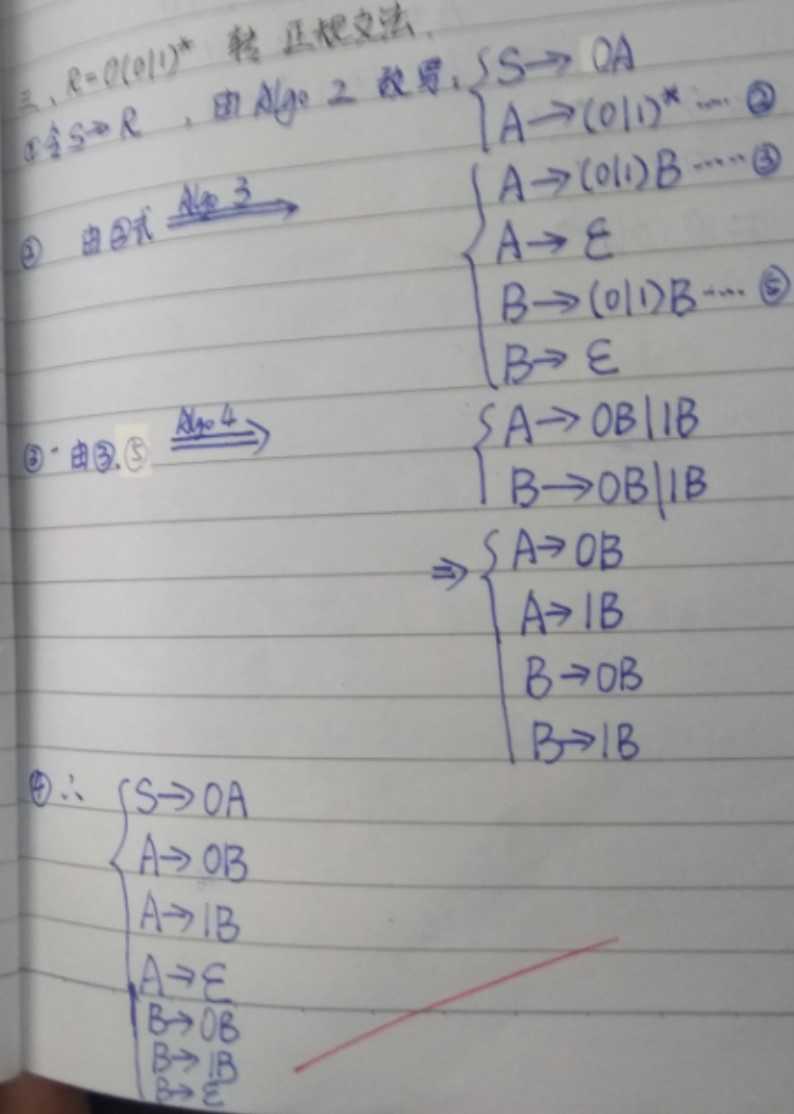 三、R=0(0|1)* 转 正规文法.
①令S→R ，由 Algo 2 改写. S→ 0A
A→(0|1)* ···· ②
A→(0|1)B ····· ③
② 由②式 Algo 3 A→ε
B→(0|1)B ···· ⑤
B→ε
③· 由③.⑤ Algo 4 A→ 0B|1B
B→0B|1B
⇒ A→0B
A→1B
B→0B
B→1B
④ ∴ S→0A
A→0B
A→1B
A→ε
B→0B
B→1B
B→ε